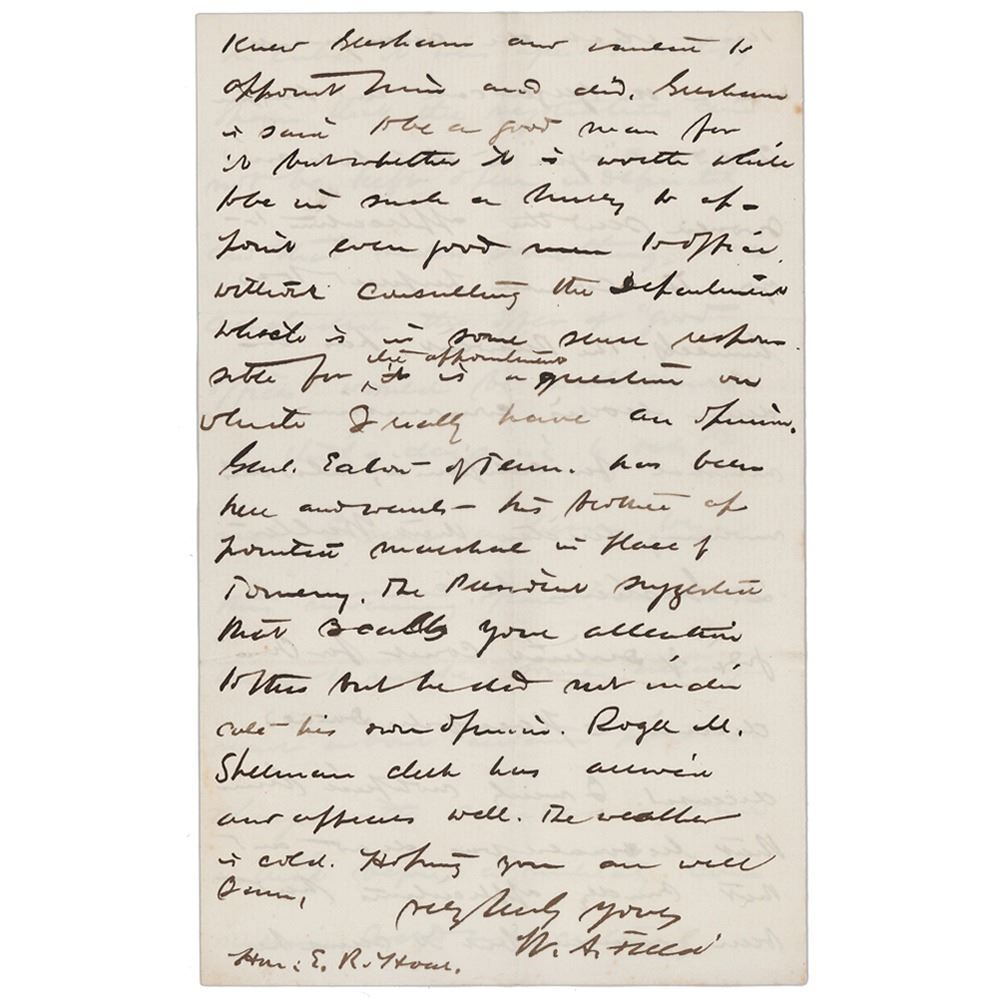 knew Gresham and wanted to
appoint him and did. Gresham
is said to be a good man for
it but whether it is worth while
to be in such a hurry to ap-
point even good men to office
without consulting the Department
which is in some sense respon-
sible for the appointment it is a question on
which I really have an opinion.
Genl. Eaton of Tenn. has been
here and wants his brother ap
pointed marshal in place of
The President suggested
that I call your attention
to this but he did not indi
cate his own opinion. Roger M.
Sherman clerk has arrived
and appears well. The weather
is cold. Hoping you are well
I am,
very truly yours
W. A. Field
Hon: E. R. Hoar.